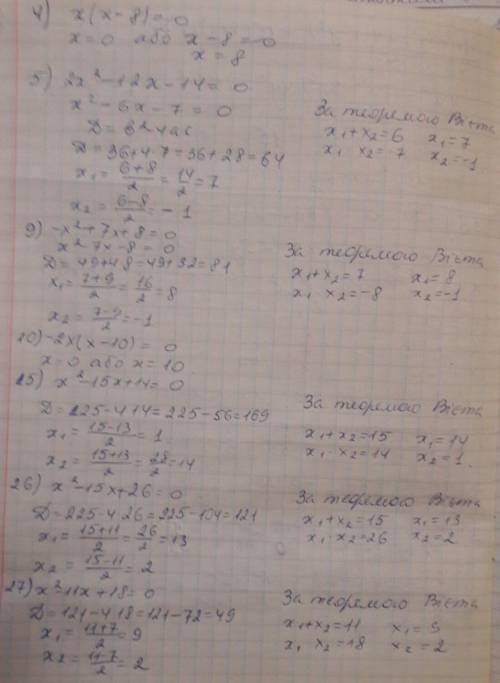 4) x(x-8)=0
x=0 або x-8=0
x=8
5) 2x²-12x-14=0
x²-6x-7=0
D=b²-4ac
D=36+4·7=36+28=64
x₁=(6+8)/2=14/2=7
x₂=(6-8)/2=-1
За теоремою Вієта
x₁+x₂=6 x₁=7
x₁·x₂=-7 x₂=-1
9) -x²+7x+8=0
x²-7x-8=0
D=49+4·8=49+32=81
x₁=(7+9)/2=16/2=8
x₂=(7-9)/2=-1
За теоремою Вієта
x₁+x₂=7 x₁=8
x₁·x₂=-8 x₂=-1
10) -2x(x-10)=0
x=0 або x=10
25) x²-15x+14=0
D=225-4·14=225-56=169
x₁=(15-13)/2=1
x₂=(15+13)/2=28/2=14
За теоремою Вієта
x₁+x₂=15 x₁=14
x₁·x₂=14 x₂=1
26) x²-15x+26=0
D=225-4·26=225-104=121
x₁=(15+11)/2=26/2=13
x₂=(15-11)/2=2
За теоремою Вієта
x₁+x₂=15 x₁=13
x₁·x₂=26 x₂=2
27) x²-11x+18=0
D=121-4·18=121-72=49
x₁=(11+7)/2=9
x₂=(11-7)/2=2
За теоремою Вієта
x₁+x₂=11 x₁=9
x₁·x₂=18 x₂=2